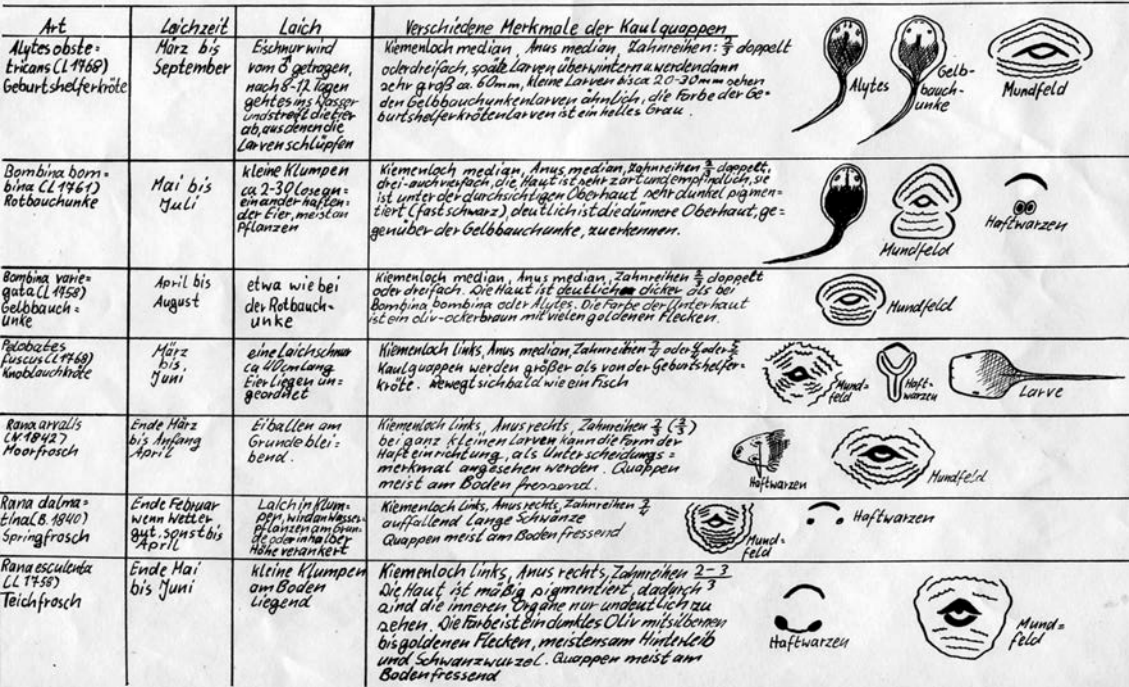 Art
Laichzeit
Laich
Verschiedene Merkmale der Kaulquappen
Alytes obste=
tricans (L 1768)
Geburtshelferkröte
März bis
September
Eischnur wird
vom ♂ getragen,
nach 8-12 Tagen
geht es ins Wasser
und streift die Eier
ab, aus denen die
Larven schlüpfen
Kiemenloch median, Anus median, Zahnreihen: 2/3 doppelt
oder dreifach, späte Larven überwintern u. werden dann
sehr groß ca. 60mm, kleine Larven bis ca 20-30mm sehen
den Gelbbauchunkenlarven ähnlich, die Farbe der Ge=
burtshelferkrötenlarven ist ein helles Grau.
Alytes
Gelb-
bauch-
unke
Mundfeld
Bombina bom=
bina (L 1761)
Rotbauchunke
Mai bis
Juli
kleine Klumpen
ca 2-30 lose an=
einander haften=
der Eier, meist an
Pflanzen
Kiemenloch median, Anus median, Zahnreihen 2/3 doppelt,
drei- auch vierfach, die Haut ist sehr zart und empfindlich, sie
ist unter der durchsichtigen Oberhaut sehr dunkel pigmen=
tiert (fast schwarz), deutlich ist die dünnere Oberhaut, ge=
genüber der Gelbbauchunke, zu erkennen.
Mundfeld
Haftwarzen
Bombina varie=
gata (L 1758)
Gelbbauch=
unke
April bis
August
etwa wie bei
der Rotbauch-
unke
Kiemenloch median, Anus median, Zahnreihen 2/3 doppelt
oder dreifach. Die Haut ist deutlich dicker als bei
Bombina bombina oder Alytes. Die Farbe der Unterhaut
ist ein oliv-ockerbraun mit vielen goldenen Flecken.
Mundfeld
Pelobates
fuscus (L 1768)
Knoblauchkröte
März
bis
Juni
eine Laichschnur
ca 40cm lang
Eier liegen un=
geordnet
Kiemenloch links, Anus median, Zahnreihen oder oder
Kaulquappen werden größer als von der Geburtshelfer=
kröte. Bewegt sich bald wie ein Fisch
Mund=
feld
Haft=
warzen
Larve
Rana arvalis
(N. 1842)
Moorfrosch
Ende März
bis Anfang
April
Eiballen am
Grunde blei=
bend.
Kiemenloch links, Anus rechts, Zahnreihen
bei ganz kleinen Larven kann die Form der
Hafteinrichtung, als Unterscheidungs=
merkmal angesehen werden. Quappen
meist am Boden fressend.
Haftwarzen
Mundfeld
Rana dalma=
tina (B. 1840)
Springfrosch
Ende Februar
wenn Wetter
gut, sonst bis
April
Laich in Klum=
pen, wird an Wasser=
pflanzen am Grun=
de oder in halber
Höhe verankert
Kiemenloch links, Anus rechts, Zahnreihen
auffallend lange Schwänze
Quappen meist am Boden fressend
Mund=
feld
Haftwarzen
Rana esculenta
(L 1758)
Teichfrosch
Ende Mai
bis Juni
kleine Klumpen
am Boden
liegend
Kiemenloch links, Anus rechts, Zahnreihen 2-3/3
Die Haut ist mäßig pigmentiert, dadurch
sind die inneren Organe nur undeutlich zu
sehen. Die Farbe ist ein dunkles Oliv mit silbernen
bis goldenen Flecken, meistens am Hinterleib
und Schwanzwurzel. Quappen meist am
Boden fressend
Haftwarzen
Mund=
feld